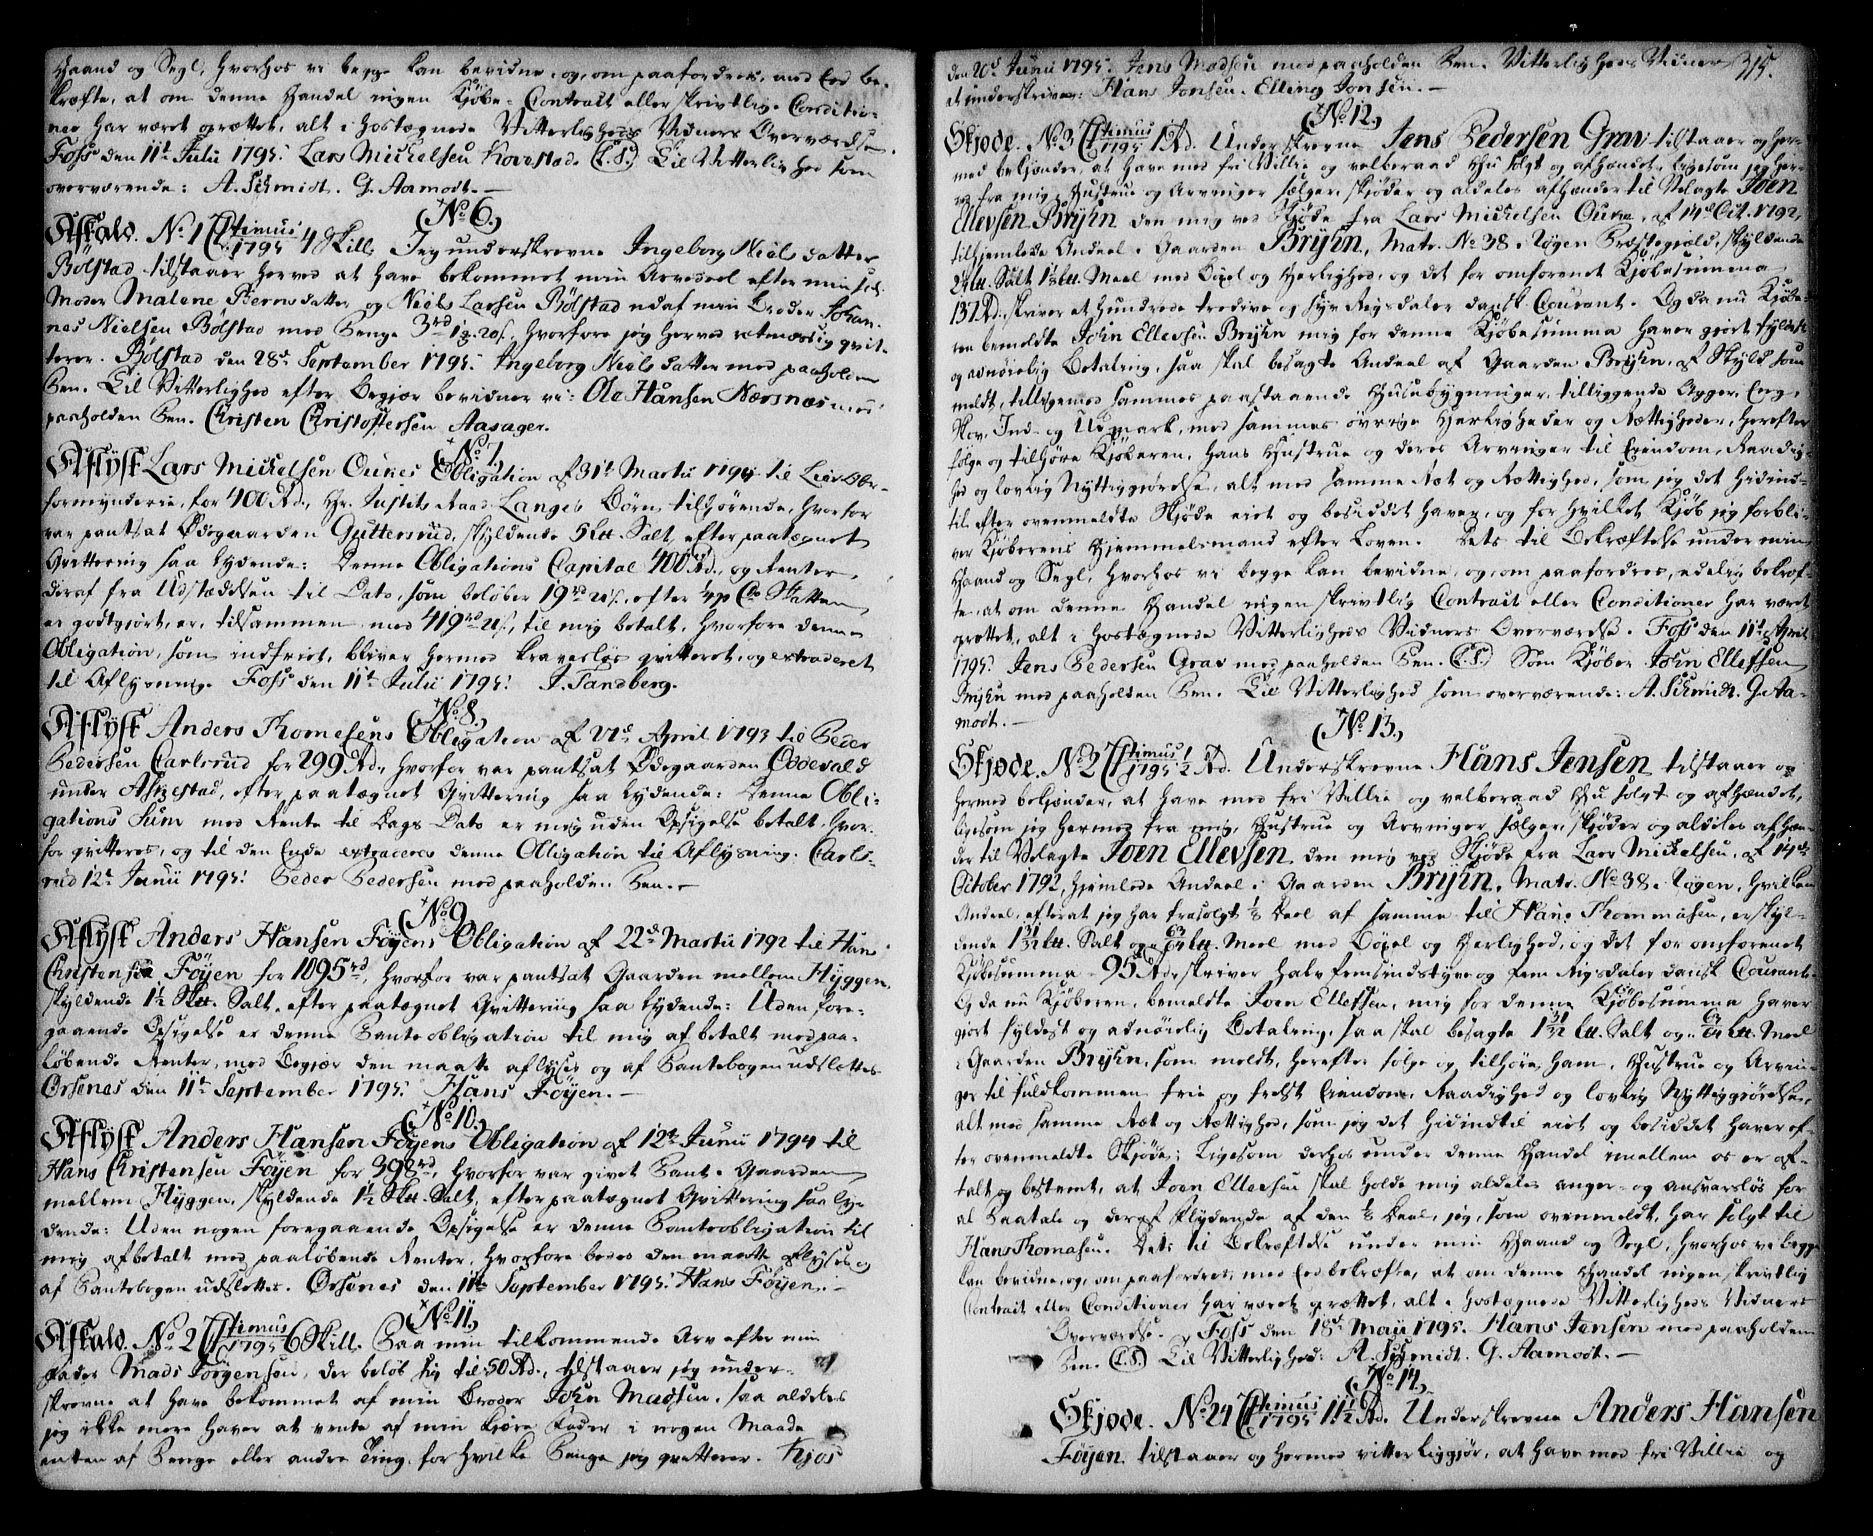 Haand og Segl, hvorhos vi begge kan bevidne, og, om paafordres, med Eed be-
kræfte, at om denne Handel nogen Kjøbe-Contract eller skrivtlige Conditi-
ner har været oprættet, alt i hostegnede Vitterligheds Vidners Overværelse.
Foss den 11te Julii 1795. Lars Mickelsen Kovestad. (L.S.) Til Vitterlighed som
overværende: A. Schmidt. G. Aamodt.—
(No 6.)
Afkald. No 1 Ctimus 1795 4 Skill. Jeg underskrevne Ingeborg Niels datter
Bølstad tilstaaer herved at have bekommet min Arvedeel efter min sal.
Moder Malene Biørnsdatter og Niels Larsen Bølstad udaf min Broder Johan-
nes Nielsen Bølstad med Penge 3rd 1 20s, hvorfore jeg herved retmæssig qvit-
terer. Bølstad den 28de September 1795. Ingeborg Niels datter med paaholden
Pen. Til Vitterlighed efter Begjær bevidner vi: Ole Hansen Nærsnes med
paaholden Pen. Christen Christoffersen Aasager.
(No 7.)
Aflyst Lars Mickelsen Ounes Obligation af 31te Martii 1794 til Leier Ober-
formynderie, for 400 Rd., Hr. Justits Raad Langes Børn tilhørende, hvorfor
var pantsat Ødegaarden Guttersrud, skyldende 5 Ltt. Salt, efter paategnet
Qvittering saa lydende: Denne Obligations Capital 400 Rd., og Renter,
deraf fra Udstædelsen til Dato, som beløber 19rd efter 1/4 p Cto Skatten
er godtgjort, er, tilsammen med 419rd til mig betalt, hvorfore denne
Obligation, som indfriet, bliver hermed kravesløs qvitteret, og extraderet
til Aflysning. Foss den 11te Julii 1795. J. Sandberg.
(No 8.)
Aflyst Anders Thomesens Obligation af 21de April 1793 til Peder
Pedersen Carlsrud for 299 Rd., hvorfor var pantsat Ødegaarden Oddevald
under Askestad, efter paategnet Qvittering saa lydende: Denne Obli-
gations Sum med Rente til Dags Dato er mig uden Opsigelse betalt, hvor-
for qvitteres, og til den Ende extraderes denne Obligation til Aflysning. Carls-
rud 12te Junii 1795. Peder Pedersen med paaholden Pen.—
(No 9.)
Aflyst Anders Hansen Föyens Obligation af 22de Martii 1792 til Hans
Christensen Föyen for 1095rd, hvorfor var pantsat Gaarden mellem Hyggen,
skyldende 1½ Sktt. Salt, efter paategnet Qvittering saa lydende: Uden fore-
gaaende Opsigelse er denne Panteobligation til mig afbetalt med paa-
løbende Renter, med Begjær den maatte aflyses og af Pantebogen udslettes.
Örsenes den 11te September 1795. Hans Föyen.—
(No 10.)
Aflyst Anders Hansen Föyens Obligation af 12te Junii 1794 til
Hans Christensen Föyen for 398rd, hvorfor var givet Pant i Gaarden
mellem Hyggen, skyldende 1½ Sktt. Salt, efter paategnet Qvittering saa ly-
dende: Uden nogen foregaaende Opsigelse er denne Panteobligation til
mig afbetalt med paaløbende Renter, hvorfore bedes den maatte aflyses og
af Pantebogen udslettes. Örsenes den 11te September 1795. Hans Föyen.—
(No 11.)
Afkald. No 2 Ctimus 1795 6 Skill. Paa min tilkommende Arv efter min
Fader Mads Jörgensen, der beløb sig til 50 Rd., tilstaaer jeg under-
skrevne at have bekommet af min Broder John Madsen, saa aldeles
jeg ikke mere haver at vente af min kjære Fader i nogen Maade
enten af Penge eller andre Ting, for hvilke Penge jeg qvitterer. Kjos
den 20de Junii 1795. Jens Madsen med paaholden Pen. Vitterligheds Vidner 315.
at underskrive: Hans Jonsen. Elling Jonsen.—
(No 12.)
Skjøde. No 3 Ctimus 1795 1 Rd. Underskrevne Jens Pedersen Grav tilstaaer og her-
med bekjender, at have med fri Villie og velberaad Hu solgt og afhændet, ligesom jeg her-
ved fra mig, Hustrue og Arvinger sælger, skjøder og aldeles afhænder til Velagte Joen
Ellevsen Bryhn den mig ved Skjøde fra Lars Mickelsen Oune, af 14de Oct. 1792,
tilhjemlede Andeel i Gaarden Bryhn, Matr. No 38 i Røgen Præstegjæld, skyldende
2¼ Ltt. Salt 1⅛ Ltt. Meel med Bøxel og Herlighed, og det for omforenet Kjøbesumma
137 Rd., skriver et hundrede tredive og syv Rigsdaler dansk Courant. Og da nu Kjøbe-
ren bemeldte John Ellevsen Bryhn mig for denne Kjøbesumma haver giort fyldest
og adnøielig Betaling, saa skal besagte Andeel af Gaarden Bryhn, af Skyld som
meldt, tilligemed sammes paastaaende Huusebygninger, tilliggende Agger, Eng,
Skov, Ind- og Udmark, med sammes øvrige Herligheder og Rættigheder, herefter
følge og tilhøre Kjøberen, hans Hustrue og deres Arvinger til Eiendom, Raadig-
hed og lovlig Nyttiggjørelse, alt med samme Ræt og Rættighed, som jeg det hidind-
til efter ovenmeldte Skjøde eiet og besiddet haver, og for hvilket Kjøb jeg forbli-
ver Kjøberens Hjemmelsmand efter Loven. Dets til Bekræftelse under min
Haand og Segl, hvorhos vi begge kan bevidne, og, om paafordres, edelig bekræf-
te, at om denne Handel nogen skrivtlig Contract eller Conditioner har været
oprættet, alt i hostegnede Vitterligheds Vidners Overværelse. Foss den 11te April
1795. Jens Pedersen Grav med paaholden Pen. (L.S.) Som Kjøber John Ellefsen
Bryhn med paaholden Pen. Til Vitterlighed som overværende: A. Schmidt. G. Aa-
modt.—
(No 13.)
Skjøde. No 2 Ctimus 1795 ½ Rd. Underskrevne Hans Jensen tilstaaer og
hermed bekjender, at have med fri Villie og velberaad Hu solgt og afhændet,
ligesom jeg hermed fra mig, Hustrue og Arvinger sælger, skjøder og aldeles afhæn-
der til Velagte Joen Ellevsen den mig ved Skjøde fra Lars Mickelsen, af 14de
October 1792, hjemlede Andeel i Gaarden Bryhn, Matr. No 38 i Røgen, hvilken
Andeel, efterat jeg har frasolgt ⅛ Deel af samme til Hans Thommesen, er skyl-
dende 1 31/32 Ltt. Salt og 63/64 Ltt. Meel med Bøxel og Herlighed, og det for omforenet
Kjøbesumma 95 Rd., skriver halvfemsindstyve og fem Rigsdaler dansk Courant.
Og da nu Kjøberen, bemeldte Joen Ellefsen, mig for denne Kjøbesumma haver
gjort fyldest og adnøielig Betaling, saa skal besagte 1 31/32 Ltt. Salt og 63/64 Ltt. Meel
i Gaarden Bryhn, som meldt, herefter følge og tilhøre ham, Hustrue og Arvin-
ger til fuldkommen frie og frelst Eiendom, Raadighed og lovlig Nyttiggjørelse,
alt med samme Ræt og Rættighed, som jeg det hidindtil eiet og besiddet haver ef-
ter ovenmeldte Skjøde; Ligesom derhos under denne Handel imellem os er af-
talt og bestemt, at Joen Ellevsen skal holde mig aldeles anger- og ansvarsløs for
al Paatale og deraf flydende af den ⅛ Deel, jeg, som ovenmeldt, har solgt til
Hans Thomasen. Dets til Bekræftelse under min Haand og Segl, hvorhos vi begge
kan bevidne, og, om paafordres, med Eed bekræfte, at om denne Handel nogen skrivtlig
Contract eller Conditioner har været oprættet, alt i hostegnede Vitterligheds Vidners
Overværelse. Foss den 18de Maii 1795. Hans Jensen med paaholden
Pen. (L.S.) Til Vitterlighed: A. Schmidt. G. Aamodt.—
(No 14.)
Skjøde. No 24 Ctimus 1795 1½ Rd. Underskrevne Anders Hansen
Föyen tilstaaer og hermed vitterliggjør, at have med fri Villie og